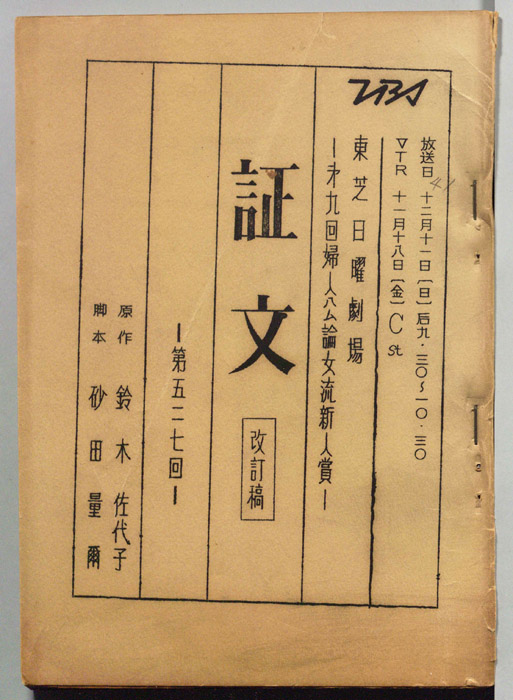 放送日 十二月十一日〔日〕后九・三〇〜一〇・三〇
VTR 十一月十八日〔金〕C st
41
TBS
東芝日曜劇場
―才九回婦人公論女流新人賞―
証文
改訂稿
―第五二七回―
原作 鈴木佐代子
脚本 砂田量爾